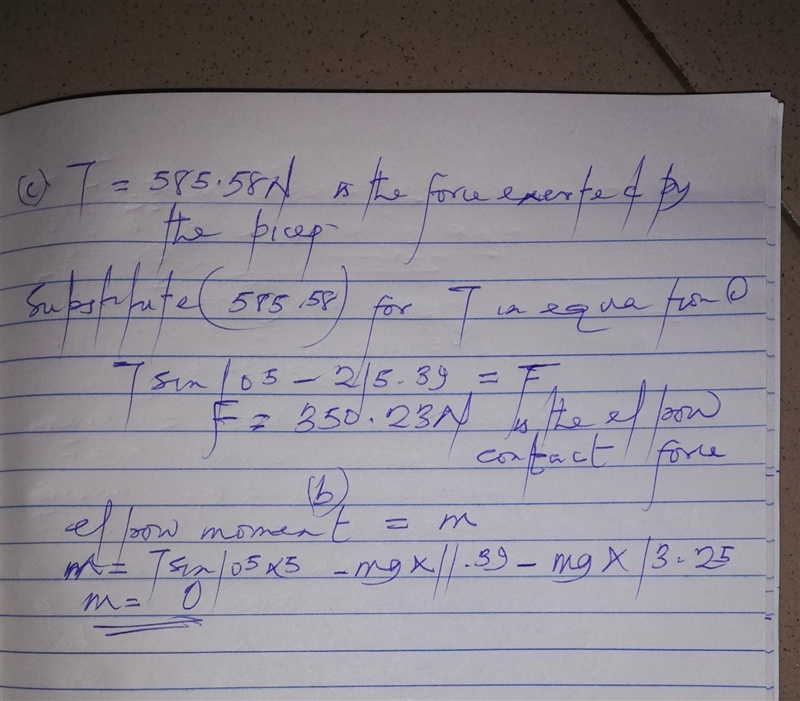 (c) T = 585.58N is the force exerted by
the bicep
Substitute (585.58) for T in equation ①
T sin 105 - 215.39 = F
F = 350.23N is the elbow
contact force
(b)
elbow moment = m
m = Tsin105x5 - mg x 11.39 - mg x 13.25
m = 0